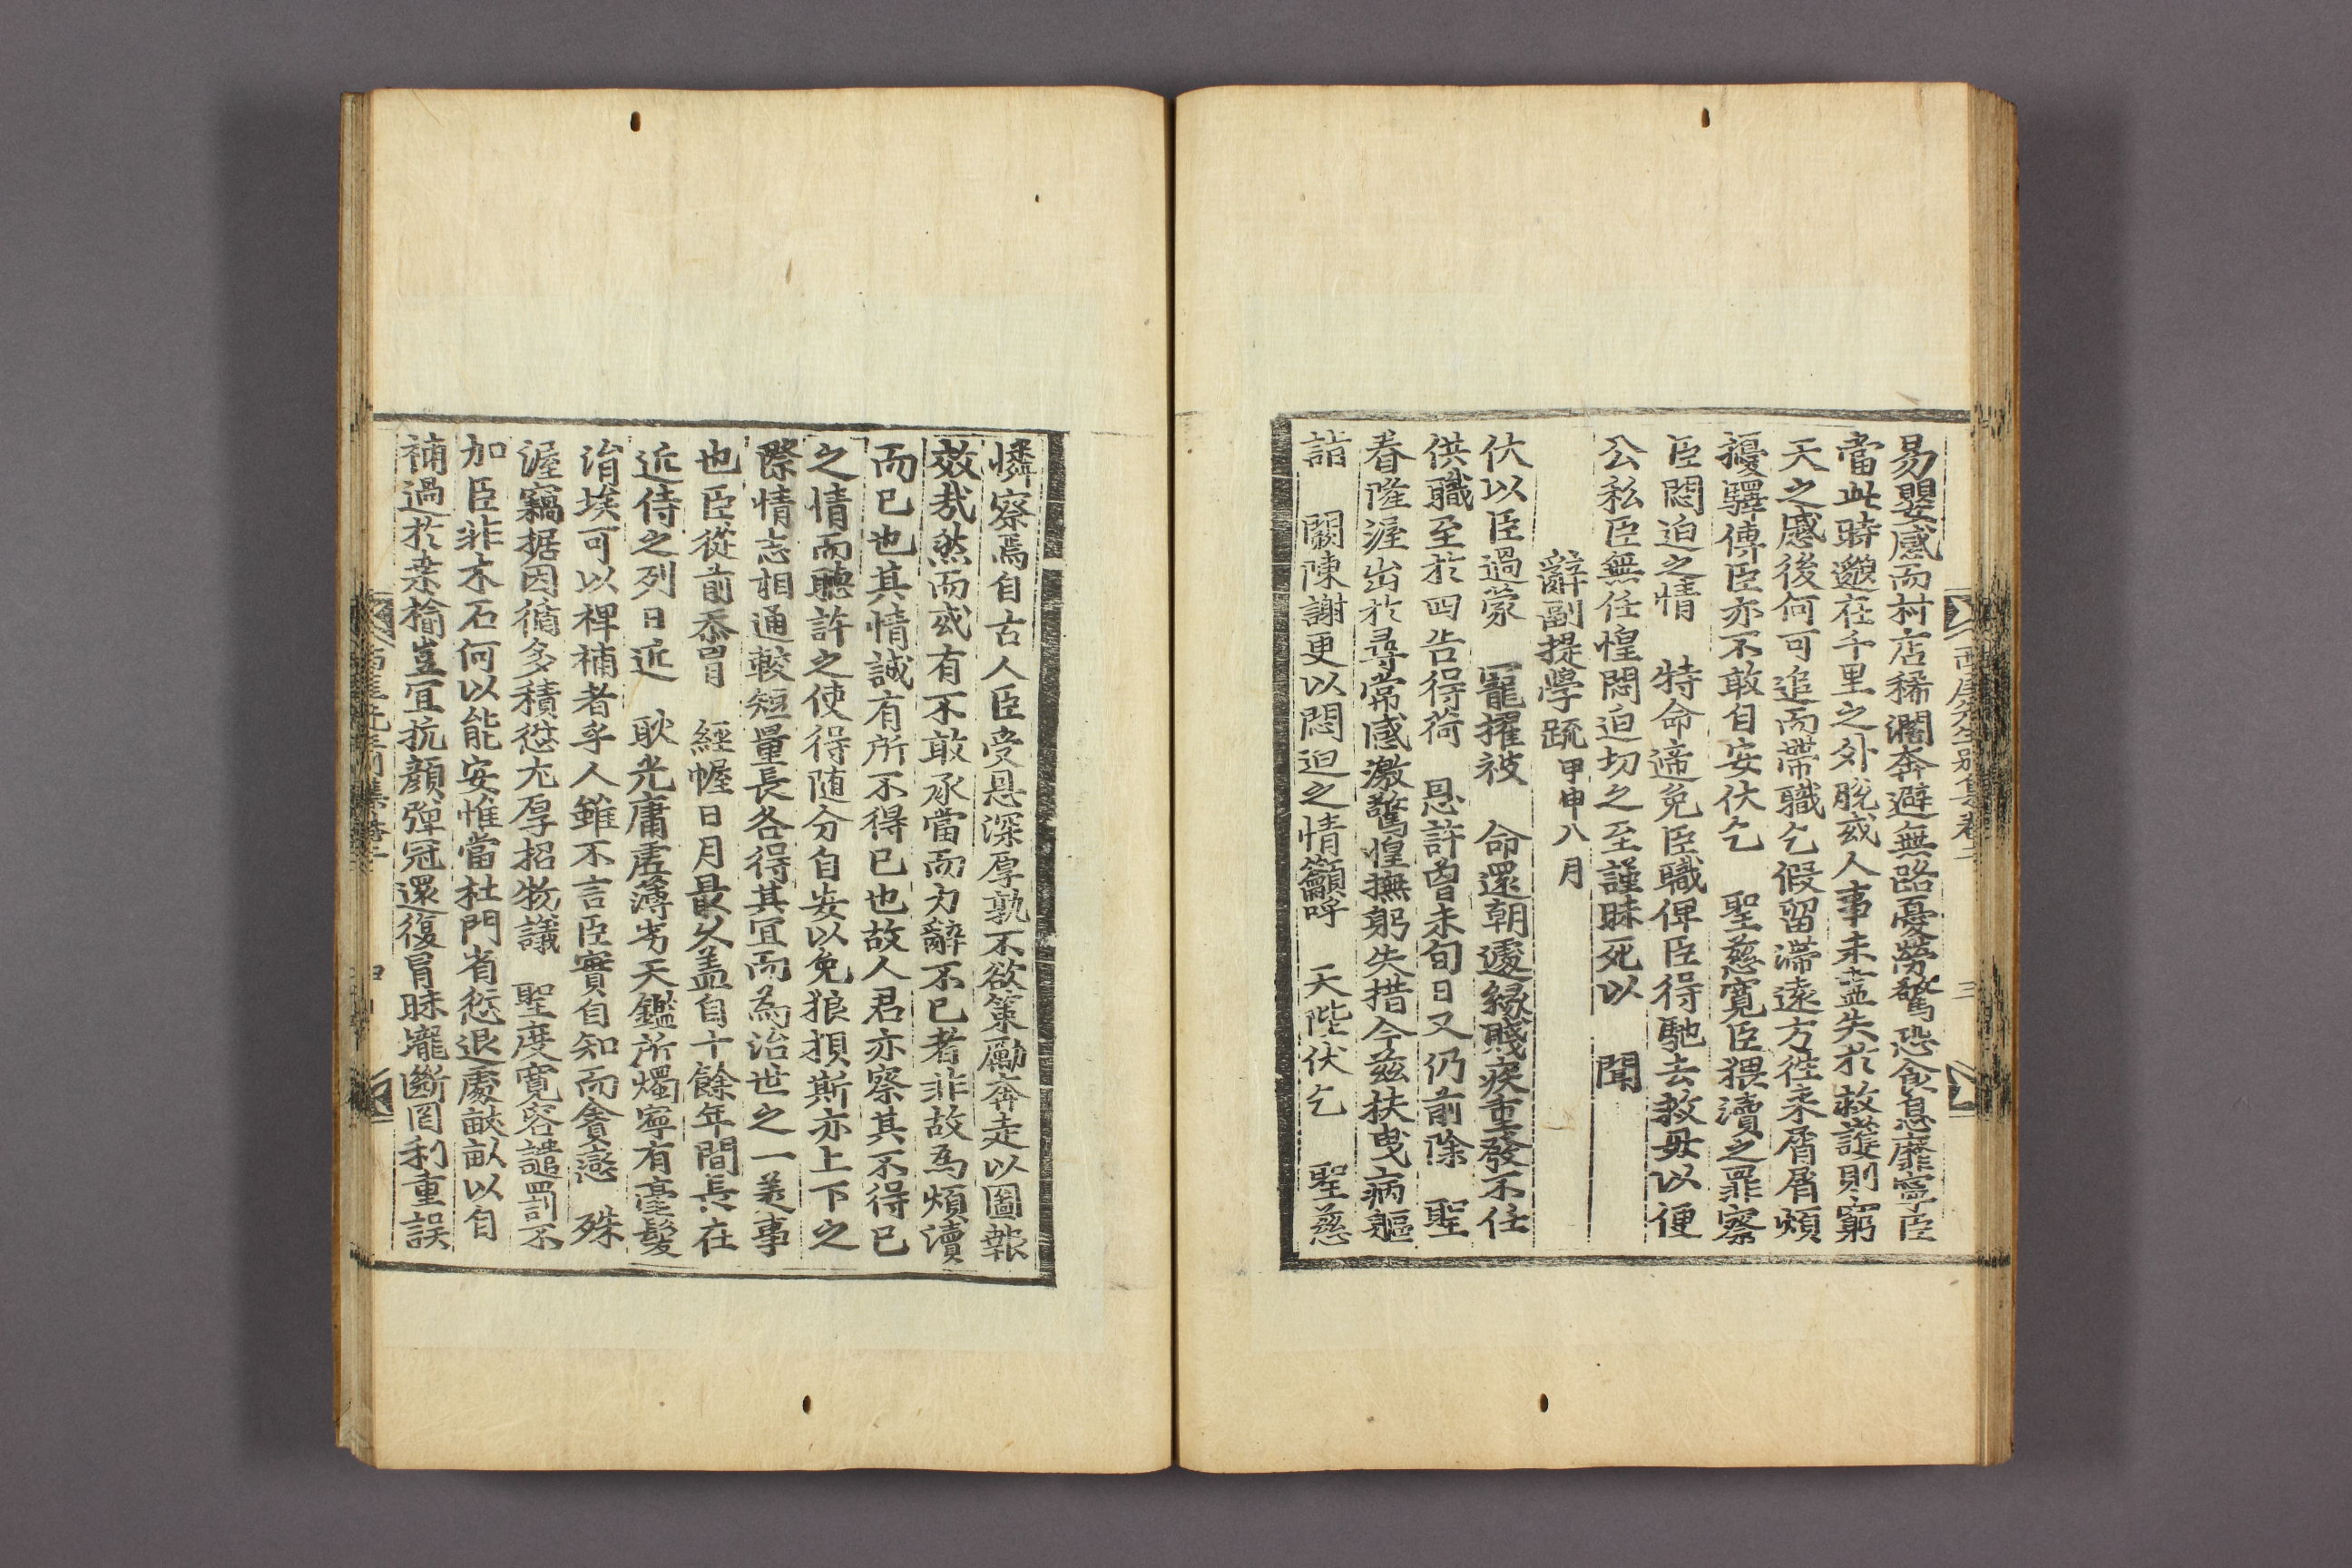 易嬰感而村店稀濶奔避無路憂勞驚恐食息靡寧臣
當此時邈在千里之外脫或人事未盡失於救護則窮
天之慼後何可追而帶職乞假留滯遠方徃來屑屑煩
擾驛傳臣亦不敢自安伏乞 聖慈寬臣猥瀆之罪察
臣悶迫之情 特命遞免臣職俾臣得馳去救母以便
公私臣無任惶悶迫切之至謹昧死以 聞
辭副提學疏 甲申八月
伏以臣過蒙 寵擢被 命還朝遽緣賤疾重發不任
供職至於四告得荷 恩許曾未旬日又仍前除 聖
眷隆渥出於尋常感激驚惶撫躬失措今玆扶曳病軀
詣 闕陳謝更以悶迫之情籲呼 天陛伏乞 聖慈
西厓先生別集卷二
三
憐察焉自古人臣受恩深厚孰不欲策勵奔走以圖報
效哉然而或有不敢承當而力辭不已者非故爲煩瀆
而已也其情誠有所不得已也故人君亦察其不得已
之情而聽許之使得随分自安以免狼損斯亦上下之
際情志相通較短量長各得其宜而爲治世之一美事
也臣從前忝冒 經幄日月最久盖自十餘年間長在
近侍之列日近 耿光庸虛薄劣天鑑所燭寧有毫髮
涓埃可以裨補者乎人雖不言臣實自知而貪戀 殊
渥竊据因循多積愆尤厚招物議 聖度寬容譴罰不
加臣非木石何以能安惟當杜門省愆退處畎畝以自
補過於桑楡豈宜抗顔彈冠還復冒昧壠斷罔利重誤